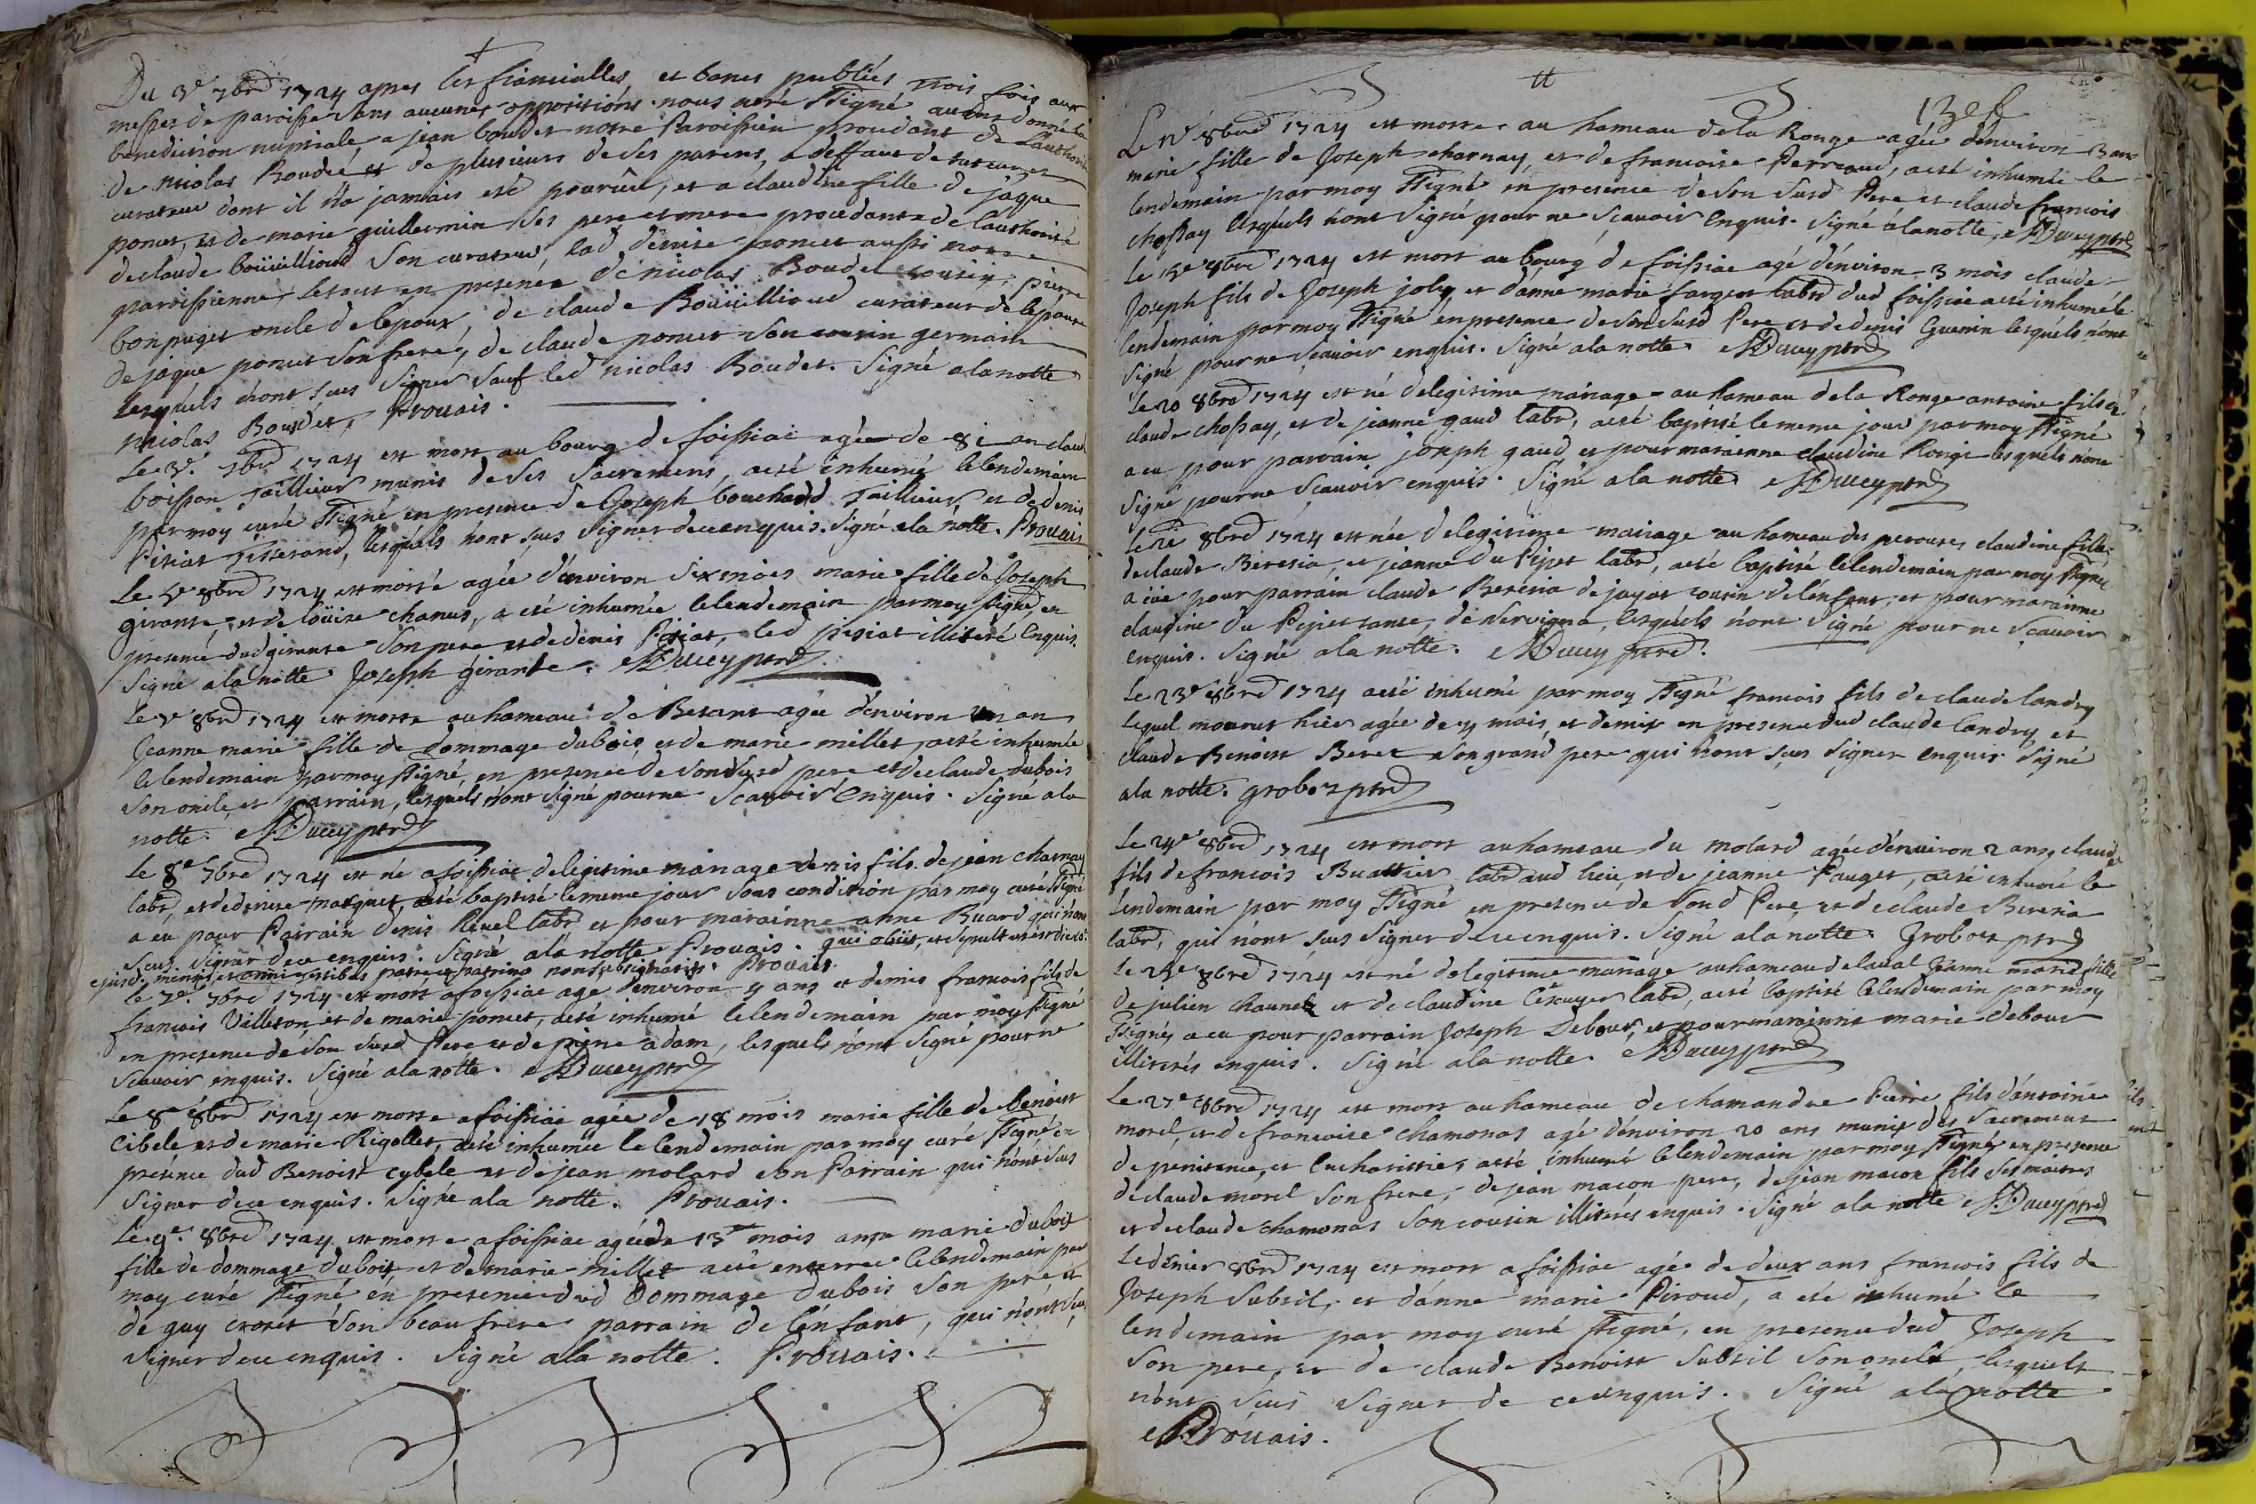 Du 3e 7bre 1724 apres les fiancialles et bancs publiés trois fois aux
messes de paroisse sans aucunes oppositions nous curé ssigné avons donné la
benediction nuptiale a jean boudet notre Paroissien procedant de l'authorité
de nicolas Boudet et de plusieurs de ses parens, a deffaut de
curateur dont il n'a jammais esté pourûu, et a claudine fille de jaque
poncet, et de marie guillermin ses pere et mere procedante de l'authorité
de claude boüuillioud son curateur, lad denise poncet aussi notre
paroissienne, le tout en presence de nicolas Boudet cousin, pierre
bonpuget oncle de lepoux, de claude Boüuillioud curateur de l'épouse
de jaque poncet son frere, de claude poncet son cousin germain
lesquels n'ont sçus signer sauf led nicolas Boudet. Signé a la notte
nicolas Boudet, Prouais.
Le 3e. 7bre 1724 est mort au bourg de foissiac agée de 81 an claude
boisson Taillieur munis de ses sacremens, a esté inhumé le lendemain
par moy curé ssigné en presence de Joseph bouchard Taillieur et de denis
Pisiat Tisserand, lesquels n'ont sçus signer de ce enquis. Signé a la notte. Prouais
Le 5e 8bre 1724 est morte agée d'environ six mois marie fille de Joseph
girante, et de loüise chanus, a eté inhumée le lendemain par moy signé, en
presence dud girante son pere et de denis Pisiat, led pisiat illiteré enquis.
Signé a la notte Joseph girante. Ducey ptre
Le 7e 8bre 1724 est morte au hameau de Besant agée d'environ un an
Jeanne marie fille de dommage dubois et de marie millet, a eté inhumée
le lendemain par moy ssigné, en presence de son susd pere et de claude dubois
son oncle, et parrain, lesquels n'ont signé pour ne scavoir enquis. Signé a la
notte. Ducey ptre
Le 8e 7bre 1724 est né a foissiac de legitime mariage denis fils de jean charnay
labr, et de denise marquet a eté baptisé le meme jour sous condition par moy curé ssigné
a eu pour Parrain denis Revel labr et pour marainne anne Buard qui n'ont
sçus signer de ce enquis. Signé a la notte Prouais. qui obiit, et sepultus est die 10a
ejusd. mensis et anni patre et patrino non subsignatis. Prouais
Le 7e. 7bre 1724 est mort a foissiac agé d'environ 4 ans et demis francois fils de
francois Villeton et de marie poncet, a eté inhumé le lendemain par moy ssigné
en presence de son susd Pere et de pierre adam, lesquels n'ont signé pour ne
scavoir enquis. Signé a la notte. Ducey ptre
Le 8e 8bre 1724 est morte a foissiac agée de 18 mois marie fille de benoist
Cibele, et de marie Rigollet, a eté inhumée le lendemain par moy curé ssigné en
presence dud Benoist cybele et de jean molard son Parrain qui n'ont sçus
signer de ce enquis. Signé a la notte. Prouais.
Le 9e. 8bre 1724 est morte a foissiac agée de 13 mois anne marie dubois
fille de dommage dubois et de marie millet a eté enterree le lendemain par
moy curé ssigné en presence dud dommage dubois son pere et
de guy crozet son beau frere parrain de l'enfant, qui n'ont sçus
signer de ce enquis. Signé a la notte. Prouais.
Le 8bre 1724 est morte au hameau de la Ronge agée d'environ 3 ans
marie fille de Joseph charnay, et de francoise Perreaud, a eté inhumée le
lendemain par moy ssigné en presence de son susd Pere et claude francois
chossay lesquels n'ont signé pour ne scavoir enquis. Signé a la notte, Ducey ptre
Le 15e 8bre 1724 est mort au bourg de foissiac agé d'environ 3 mois claude
Joseph fils de Joseph joly et d'anne marie fargeot labr dud foissiac a eté inhumé le
lendemain par moy ssigné en presence de son susd Pere et de denis Guerin lesquels n'ont
signé pour ne scavoir enquis. Signé a la notte. Ducey ptre
Le 20 8bre 1724 est né de legitime mariage au hameau de la Ronge antoine fils de
claude chossay, et de jeanne gaud labr, a eté baptisé le meme jour par moy ssigné
a eu pour parrain joseph gaud et pour marainne claudine Rongi lesquels n'ont
signé pour ne scavoir enquis. Signé a la notte Ducey ptre
Le 8bre 1724 est née de legitime mariage au hameau des perouses claudine fille
de claude Beresia, et jeanne du Pijet labr, a eté baptisé le lendemain par moy ssigné
a eue pour parrain claude Beresia de jayat cousin de l'enfant, et pour marainne
claudine du Pijet tante, de Servigna, lesquels n'ont signé pour ne scavoir
enquis. Signé a la notte. Ducey ptre.
Le 23e 8bre 1724 a eté inhumé par moy ssigné francois fils de claude landry
lequel mourut hier agée de mois et demis en presence dud claude landry, et
claude Benoist Beret son grand pere qui n'ont sçus signer enquis Signé
a la notte. grobos ptre
Le 24e 8bre 1724 est mort au hameau du molard agée d'environ 2 ans, claude
fils de francois Buattier labr aud lieu, et de jeanne Pauget, a eté inhumé le
lendemain par moy ssigné en presence de sond Pere, et de claude Beresia
labr, qui n'ont sçus signer de ce enquis. Signé a la notte. Grobos ptre
Le 25e 8bre 1724 est né de legitime mariage au hameau de laval Jeanne marie fille
de julien chaunel et de claudine lécuyer labr, a eté baptisé le lendemain par moy
ssigné, a eu pour parrain Joseph Debour, et pour marainne marie debour
illiterés enquis. Signé a la notte. Ducey ptre
Le 27e 8bre 1724 est mort au hameau de chamandre Pierre fils d'antoine
morel, et de francoise chamonas agé d'environ 20 ans munis des sacremens
de penitence, et Eucharistie, a eté inhumé le lendemain par moy ssigné, en presence
de claude morel son frere, de jean macon pere, de jean macon fils ses maitres
et de claude chamonas son cousin illiterés enquis. Signé a la notte Ducey ptre
Le dernier 8bre 1724 est mort a foissiac agé de deux ans francois fils de
Joseph Subtil, et d'anne marie Piroud, a eté inhumé le
lendemain par moy curé ssigné, en presence dud Joseph
son pere, et de claude Benoist Subtil son oncle, lesquels
n'ont sçus signer de ce enquis. Signé a la notte
Prouais.